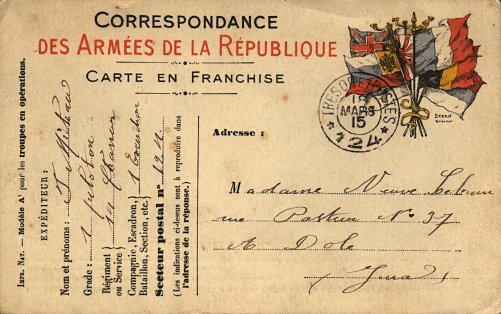 CORRESPONDANCE
DES ARMÉES DE LA RÉPUBLIQUE
CARTE EN FRANCHISE
TRESOR ET POSTES
18
MARS
15
*124*
STERN
Adresse :
Madame Veuve Lebrun
rue Pasteur No 37
A Dole
Jura
IMP. NAT. — Modèle A¹ pour les troupes en opérations.
EXPÉDITEUR :
Nom et prénoms :
Grade : 1 peloton
Régiment
ou Service
Compagnie, Escadron, 1 Escadron
Bataillon, Section, etc.
Secteur postal n°
(Les indications ci-dessus sont à reproduire dans
l'adresse de la réponse.)